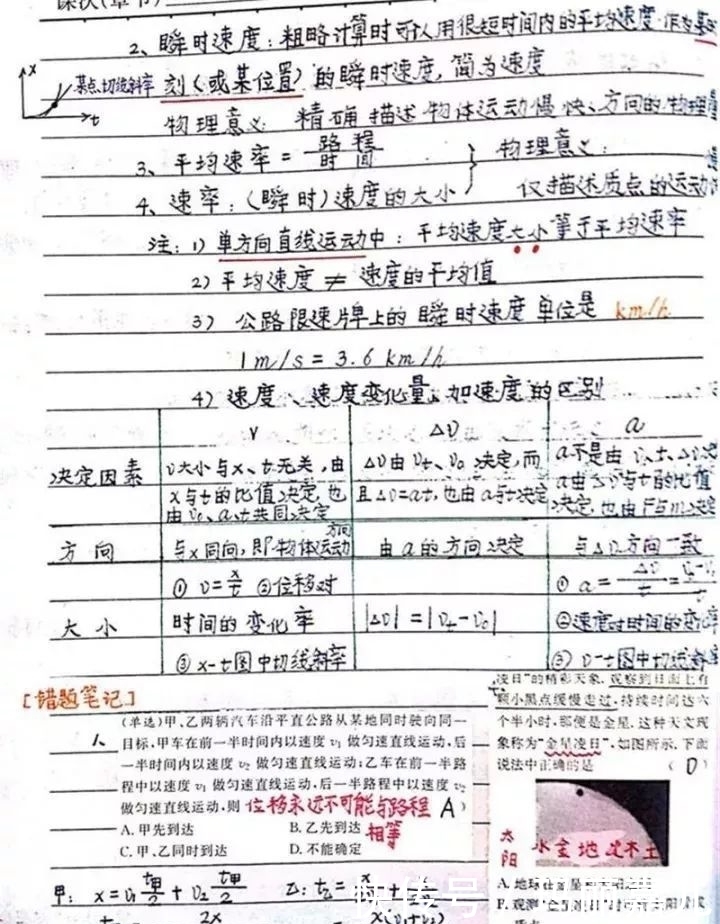 2、瞬时速度：粗略计算时可以用很短时间内的平均速度作为某
x
某点切线斜率
t
刻（或某位置）的瞬时速度，简为速度
物理意义：精确描述物体运动慢快、方向的物理量
3、平均速率 = 路程/时间
4、速率：（瞬时）速度的大小
} 物理意义：
仅描述质点的运动
注：1）单方向直线运动中：平均速度大小等于平均速率
2）平均速度 ≠ 速度的平均值
3）公路限速牌上的瞬时速度单位是 km/h
1m/s = 3.6 km/h
4）速度、速度变化量、加速度的区别
v ΔV a
决定因素
v大小与x、t无关，由x与t的比值决定，也由v₀、a、t共同决定
ΔV由Vt、V₀决定，而且ΔV=at，也由a与t决定
a不是由v、t、Δv决
a由Δv与t的比值决定，也由F与m决定
方向
与x同向，即物体运动方向
由a的方向决定
与ΔV方向一致
大小
① v=x/t ②位移对时间的变化率
③ x-t图中切线斜率
|ΔV| = |Vt-V₀|
① a=ΔV/t=
②速度对时间的变化率
③ v-t图中切线斜
[错题笔记]
1、
(单选)甲、乙两辆汽车沿平直公路从某地同时驶向同一
目标，甲车在前一半时间内以速度 v₁ 做匀速直线运动，后
一半时间内以速度 v₂ 做匀速直线运动；乙车在前一半路
程中以速度 v₁ 做匀速直线运动，后一半路程中以速度 v₂
做匀速直线运动，则 位移永远不可能与路程 A ）
相等
A. 甲先到达 B. 乙先到达
C. 甲、乙同时到达 D. 不能确定
甲：x=v₁ t甲/2 + v₂ t甲/2 乙：t₂=
2x
x(v₁+v₂)
凌日”的精彩天象，观察到日面上有
颗小黑点缓慢走过，持续时间达六
个半小时，那便是金星，这种天文现
象称为“金星凌日”，如图所示，下面
说法中正确的是 （D）
太阳
水金地火木土
A. 地球在金星
B. 观测“金星凌日”